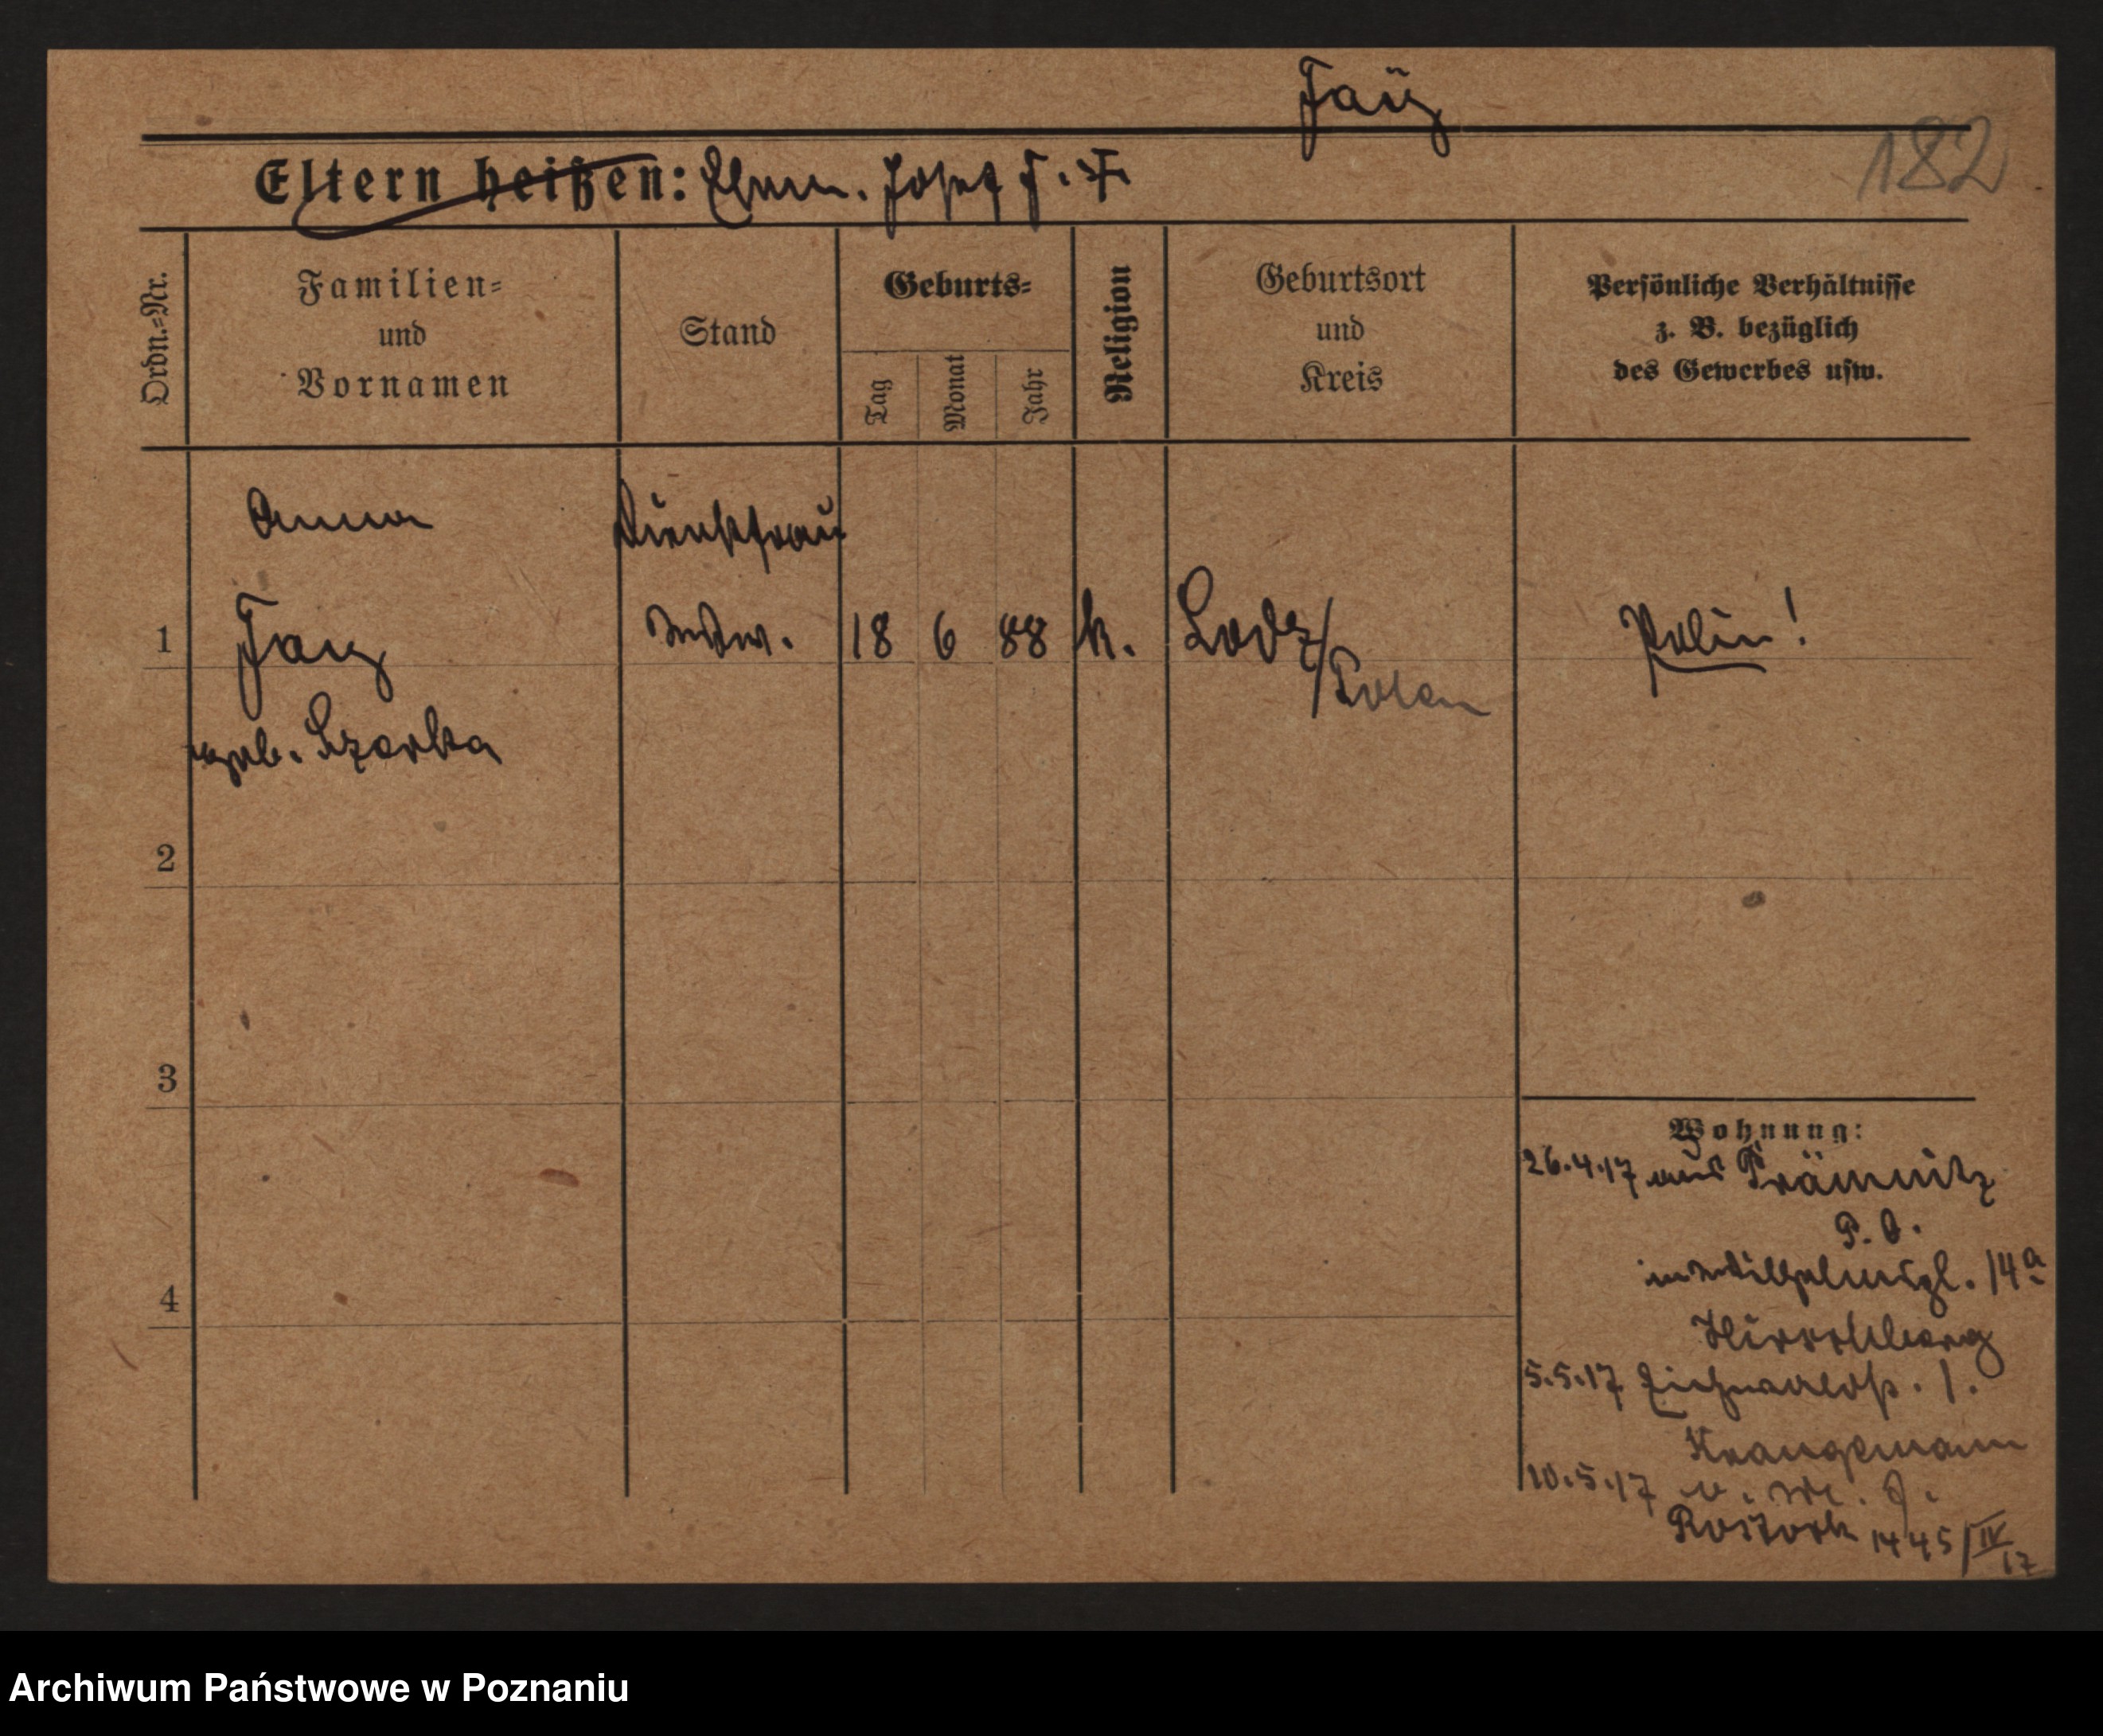 Faÿ
182
Eltern heißen: Ehem. Josef F. F.
Ordn.-Nr.
Familien- und Vornamen
Stand
Geburts-
Tag
Monat
Jahr
Religion
Geburtsort und Kreis
Persönliche Verhältnisse
z. B. bezüglich
des Gewerbes usw.
Anna Dienstfrau
1 18 6 88 k. Lodz/ Polin!
Polen
geb.
2
3
4
Wohnung:
26.4.17 aus Prämnitz
P. O.
in Wilhelmspl. 14a
Hirschberg
5.5.17 1.
Krangemann
10.5.17
Rostock 1445/IV 17
Archiwum Państwowe w Poznaniu